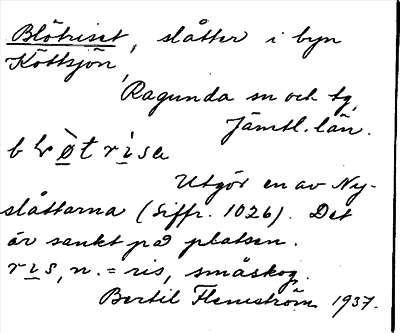 Blötriset, slåtter i byn
Köttsjön,
Ragunda sn och tg,
Jämtl. län.
b l ø̀ t r i s a
Utgör en av Ny-
slåttarna (Siffr. 1026). Det
är sankt på platsen.
r i s, n. = ris, småskog.
Bertil Flemström 1937.